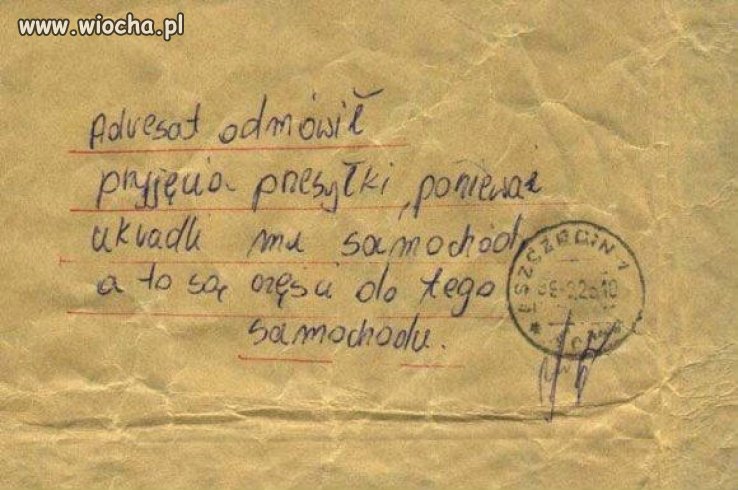 www.wiocha.pl
Adresat odmówił
przyjęcia przesyłki, ponieważ
ukradli mu samochód,
a to są części do tego
samochodu.
SZCZECIN 1